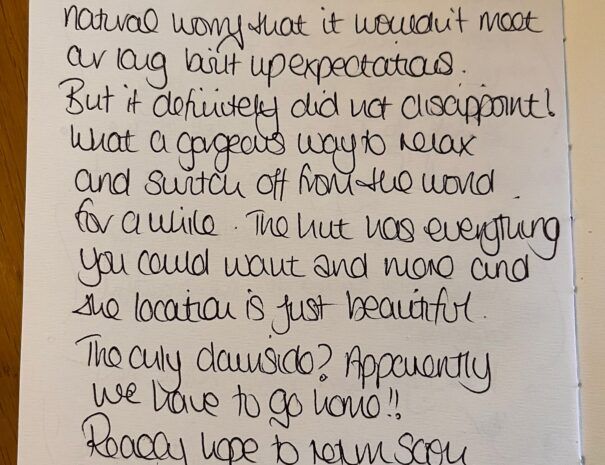 natural worry that it wouldn't meet
our long built up expectations.
But it definitely did not disappoint!
What a gorgeous way to relax
and switch off from the world
for a while. The hut has everything
you could want and more and
the location is just beautiful.
The only downside? Apparently
we have to go home!!
Really hope to return soon